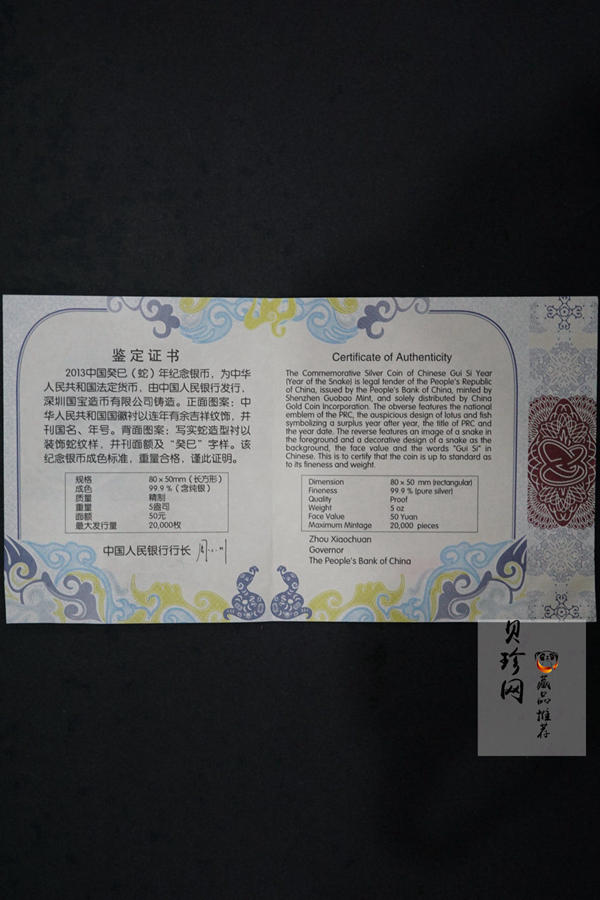 鉴定证书
2013中国癸巳（蛇）年纪念银币，为中华
人民共和国法定货币，由中国人民银行发行，
深圳国宝造币有限公司铸造。正面图案：中
华人民共和国国徽衬以连年有余吉祥纹饰，并
刊国名、年号。背面图案：写实蛇造型衬以
装饰蛇纹样，并刊面额及“癸巳”字样。该
纪念银币成色标准，重量合格，谨此证明。
规格 80×50mm（长方形）
成色 99.9％（含纯银）
质量 精制
重量 5盎司
面额 50元
最大发行量 20,000枚
中国人民银行行长
Certificate of Authenticity
The Commemorative Silver Coin of Chinese Gui Si Year
(Year of the Snake) is legal tender of the People's Republic
of China, issued by the People's Bank of China, minted by
Shenzhen Guobao Mint, and solely distributed by China
Gold Coin Incorporation. The obverse features the national
emblem of the PRC, the auspicious design of lotus and fish
symbolizing a surplus year after year, the title of PRC and
the year date. The reverse features an image of a snake in
the foreground and a decorative design of a snake as the
background, the face value and the words "Gui Si" in
Chinese. This is to certify that the coin is up to standard as
to its fineness and weight.
Dimension 80 x 50 mm (rectangular)
Fineness 99.9 % (pure silver)
Quality Proof
Weight 5 oz
Face Value 50 Yuan
Maximum Mintage 20,000 pieces
Zhou Xiaochuan
Governor
The People's Bank of China
贝珍网
藏品推荐